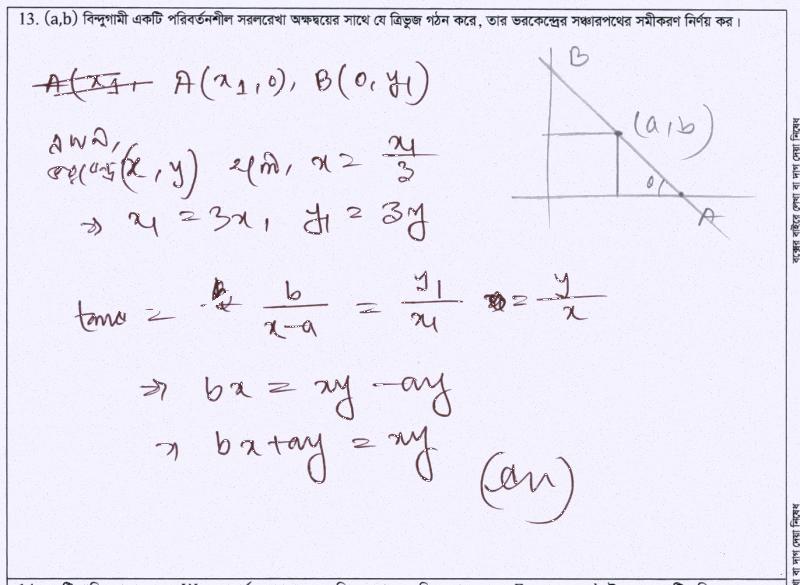 13. (a,b) বিন্দুগামী একটি পরিবর্তনশীল সরলরেখা অক্ষদ্বয়ের সাথে যে ত্রিভুজ গঠন করে, তার ভরকেন্দ্রের সঞ্চারপথের সমীকরণ নির্ণয় কর।
A(x₁, A(x₁,0), B(0,y₁)
B
(a,b)
A
ভরকেন্দ্র (x,y) x = x₁/3
⇒ x₁ = 3x, y₁ = 3y
tanθ = b/(x-a) = y₁/x₁ = y/x
⇒ bx = xy - ay
⇒ bx+ay = xy
(an)
বক্সের বাইরে লেখা বা দাগ দেয়া নিষেধ
বা দাগ দেয়া নিষেধ